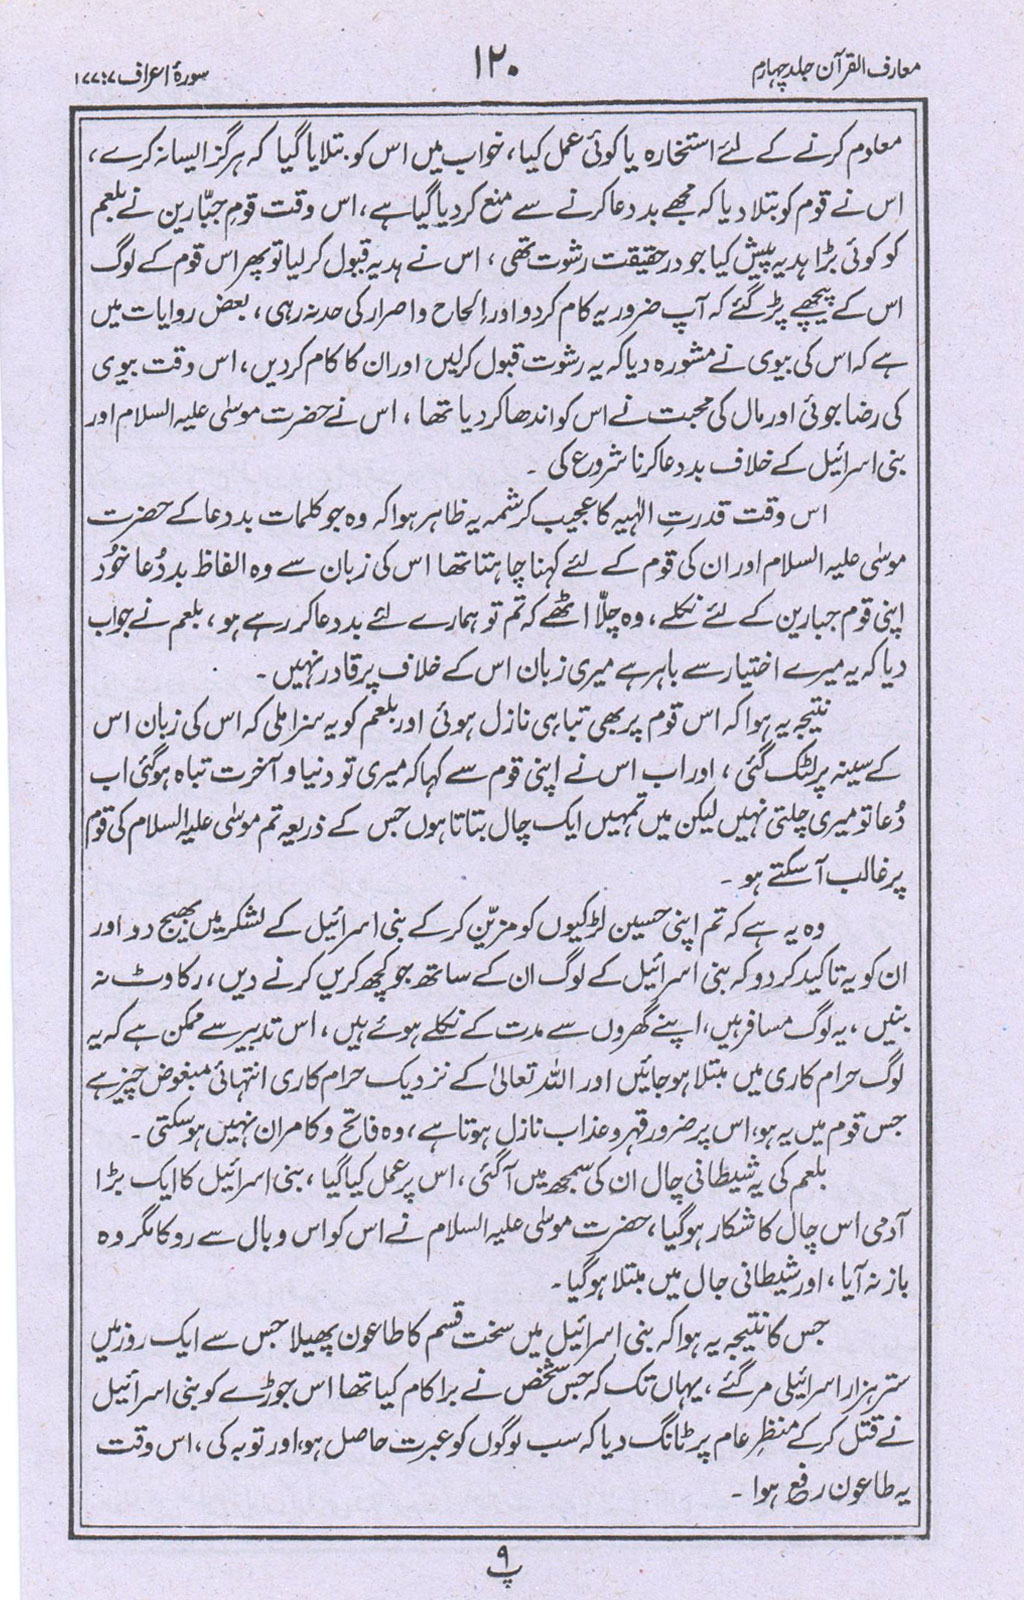 معارف القرآن جلد چہارم
۱۲۰
سورۂ اعراف ۷: ۱۷۷
معلوم کرنے کے لئے استخارہ یا کوئی عمل کیا، خواب میں اس کو بتلایا گیا کہ ہرگز ایسا نہ کرے،
اس نے قوم کو بتلا دیا کہ مجھے بد دعا کرنے سے منع کر دیا گیا ہے، اس وقت قومِ جبّارین نے بلعم
کو کوئی بڑا ہدیہ پیش کیا جو در حقیقت رشوت تھی، اس نے ہدیہ قبول کر لیا تو پھر اس قوم کے لوگ
اس کے پیچھے پڑ گئے کہ آپ ضرور یہ کام کردو اور الحاح و اصرار کی حد نہ رہی، بعض روایات میں
ہے کہ اس کی بیوی نے مشورہ دیا کہ یہ رشوت قبول کرلیں اور ان کا کام کردیں، اس وقت بیوی
کی رضا جوئی اور مال کی محبت نے اس کو اندھا کر دیا تھا، اس نے حضرت موسیٰ علیہ السلام اور
بنی اسرائیل کے خلاف بد دعا کرنا شروع کی ۔
اس وقت قدرتِ الٰہیہ کا عجیب کرشمہ یہ ظاہر ہوا کہ وہ جو کلمات بد دعا کے حضرت
موسیٰ علیہ السلام اور ان کی قوم کے لئے کہنا چاہتا تھا اس کی زبان سے وہ الفاظ بد دُعا خُود
اپنی قوم جبارین کے لئے نکلے، وہ چلّا اٹھے کہ تم تو ہمارے لئے بد دعا کر رہے ہو، بلعم نے جواب
دیا کہ یہ میرے اختیار سے باہر ہے میری زبان اس کے خلاف پر قادر نہیں ۔
نتیجہ یہ ہوا کہ اس قوم پر بھی تباہی نازل ہوئی اور بلعم کو یہ سزا ملی کہ اس کی زبان اس
کے سینہ پر لٹک گئی، اور اب اس نے اپنی قوم سے کہا کہ میری تو دنیا و آخرت تباہ ہوگئی اب
دُعا تو میری چلتی نہیں لیکن میں تمہیں ایک چال بتاتا ہوں جس کے ذریعہ تم موسیٰ علیہ السلام کی قوم
پر غالب آسکتے ہو ۔
وہ یہ ہے کہ تم اپنی حسین لڑکیوں کو مزیّن کر کے بنی اسرائیل کے لشکر میں بھیج دو اور
ان کو یہ تاکید کر دو کہ بنی اسرائیل کے لوگ ان کے ساتھ جو کچھ کریں کرنے دیں، رکاوٹ نہ
بنیں، یہ لوگ مسافر ہیں، اپنے گھروں سے مدت کے نکلے ہوئے ہیں، اس تدبیر سے ممکن ہے کہ یہ
لوگ حرام کاری میں مبتلا ہو جائیں اور اللہ تعالیٰ کے نزدیک حرام کاری انتہائی مبغوض چیز ہے
جس قوم میں یہ ہو، اس پر ضرور قہر و عذاب نازل ہوتا ہے، وہ فاتح و کامران نہیں ہو سکتی ۔
بلعم کی یہ شیطانی چال ان کی سمجھ میں آگئی، اس پر عمل کیا گیا، بنی اسرائیل کا ایک بڑا
آدمی اس چال کا شکار ہوگیا، حضرت موسیٰ علیہ السلام نے اس کو اس وبال سے روکا مگر وہ
باز نہ آیا، اور شیطانی جال میں مبتلا ہوگیا ۔
جس کا نتیجہ یہ ہوا کہ بنی اسرائیل میں سخت قسم کا طاعون پھیلا جس سے ایک روز میں
ستر ہزار اسرائیلی مر گئے، یہاں تک کہ جس شخص نے برا کام کیا تھا اس جوڑے کو بنی اسرائیل
نے قتل کر کے منظرِ عام پر ٹانگ دیا کہ سب لوگوں کو عبرت حاصل ہو، اور توبہ کی، اس وقت
یہ طاعون رفع ہوا ۔
پ ۹